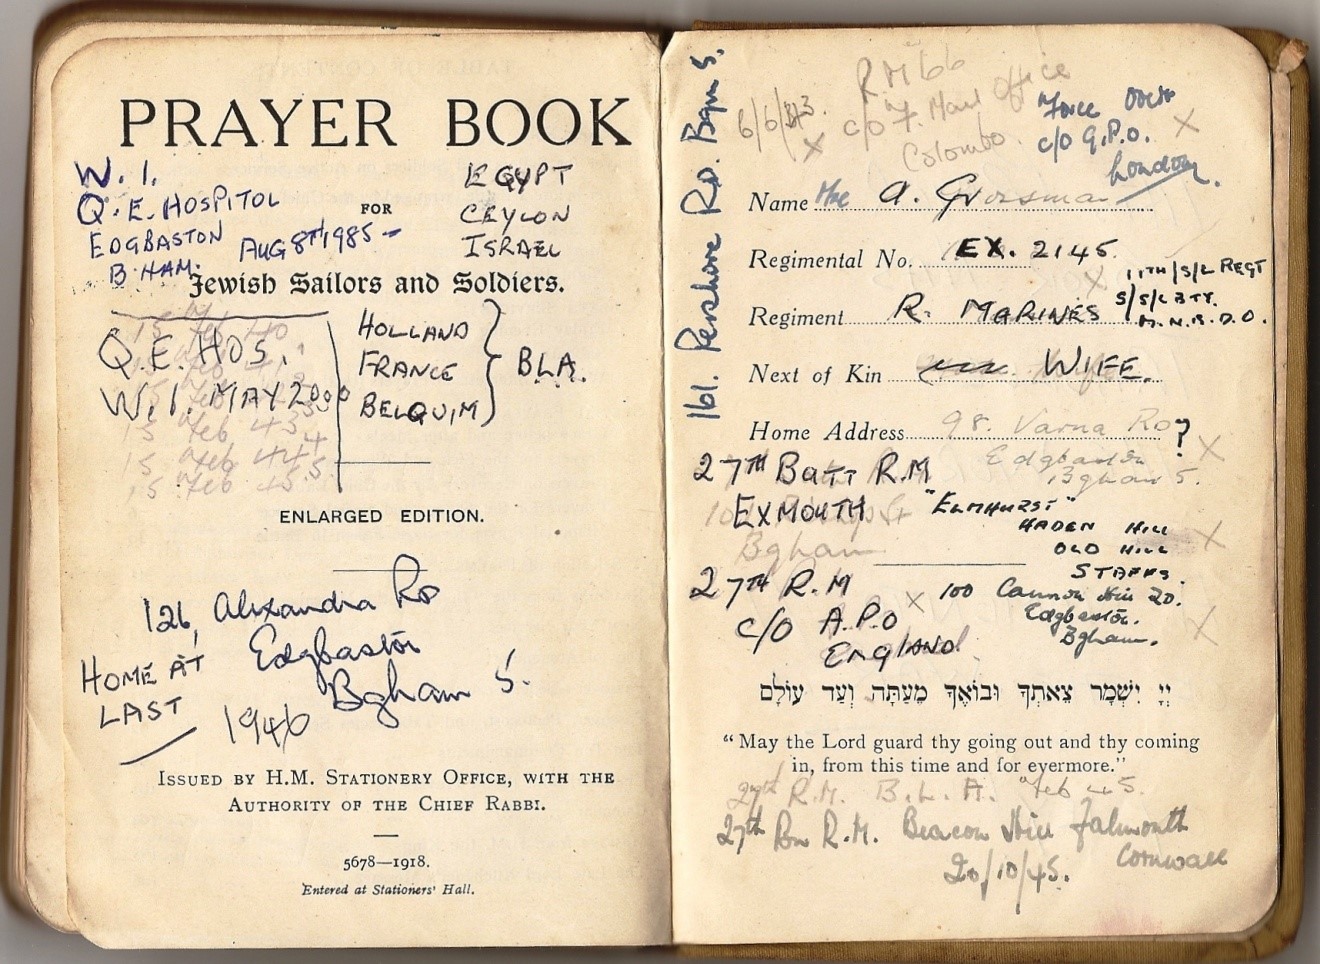 PRAYER BOOK
W. I.
Q. E. HOSPITOL
EDGBASTON AUG 8TH 1985 -
B'HAM.
EGYPT
CEYLON
ISRAEL
FOR
Jewish Sailors and Soldiers.
15 Feb 40
Q. E. HOS.
W. I. MAY 2000
15 Feb 43
15 Feb 44
15 Feb 45
HOLLAND
FRANCE
BELQUIM
B.L.A.
ENLARGED EDITION.
126, Alexandra RD
Edgbaston
Bgham 5.
HOME AT
LAST
1946
ISSUED BY H.M. STATIONERY OFFICE, WITH THE
AUTHORITY OF THE CHIEF RABBI.
5678—1918.
Entered at Stationers' Hall.
161. Pershore RD. Bgm 5.
6/6/43.
X
R.M 66
c/o F. Maul Office
Colombo.
c/o G.P.O. X
London.
Name A. Grossman
Regimental No. EX. 2145.
X 11TH/S/L REGT
Regiment R. MARINES S/S/L BTY.
M.N.B.D.O.
Next of Kin WIFE.
Home Address 98. Varna RD ?
Edgbaston X
Bgham 5.
27TH BATT R.M
EXMOUTH
Bgham
"ELMHURST"
HADEN HILL X
OLD HILL
STAFFS.
27TH R.M X
c/o A.P.O
ENGLAND
100 Cannon Hill RD.
Edgbaston. X
Bgham.
יְיָ יִשְׁמָר צֵאתְךָ וּבוֹאֶךָ מֵעַתָּה וְעַד עוֹלָם
"May the Lord guard thy going out and thy coming
in, from this time and for evermore."
27th R.M. B.L.A. Feb 45.
27th Bn R.M. Beacon Hill Falmouth
Cornwall
20/10/45.